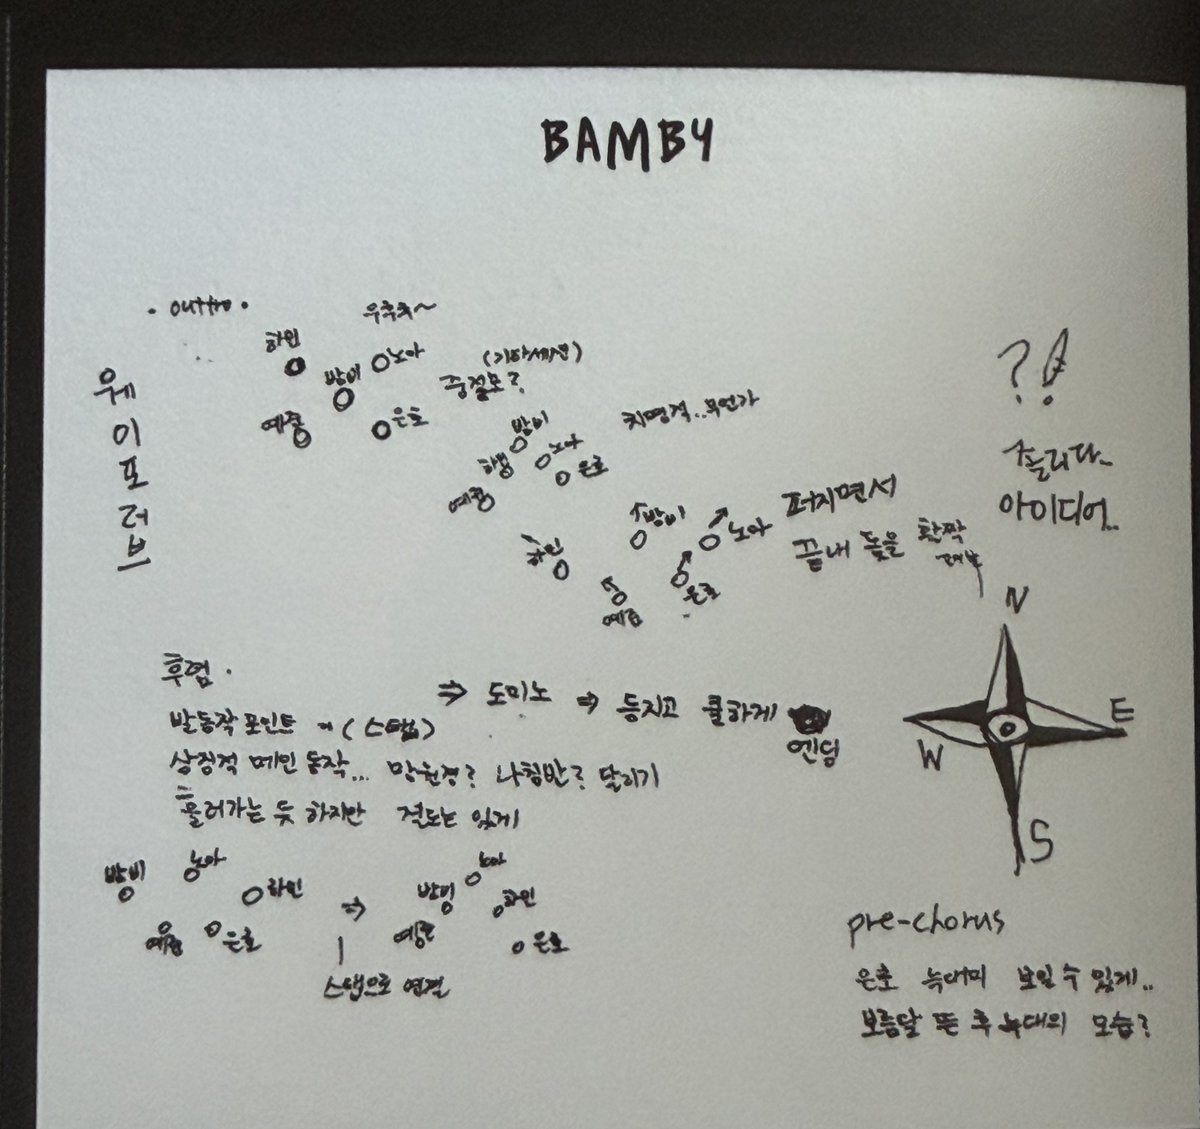 BAMBY
· outtro ·
우후츠~
하민
방비
노아
예준
은호
(기타세션)
중절모?
웨이포러브
방비
하민
노아
은호
예준
치명적..무언가
?!
졸리다..
아이디어..
하민
방비
노아
예준
은호
퍼지면서
끝내 돛을 활짝
N
E
W
S
후렴.
⇒ 도미노 ⇒ 등지고 쿨하게
엔딩
발동작 포인트 (스탭)
상징적 메인 동작... 망원경? 나침반? 달리기
흘러가는 듯 하지만 절도는 있게
방비
노아
하민
예준
은호
⇒
방비
노아
하민
예준
은호
스탭으로 연결
pre-chorus
은호 늑대미 보일 수 있게..
보름달 뜬 후 늑대의 모습?